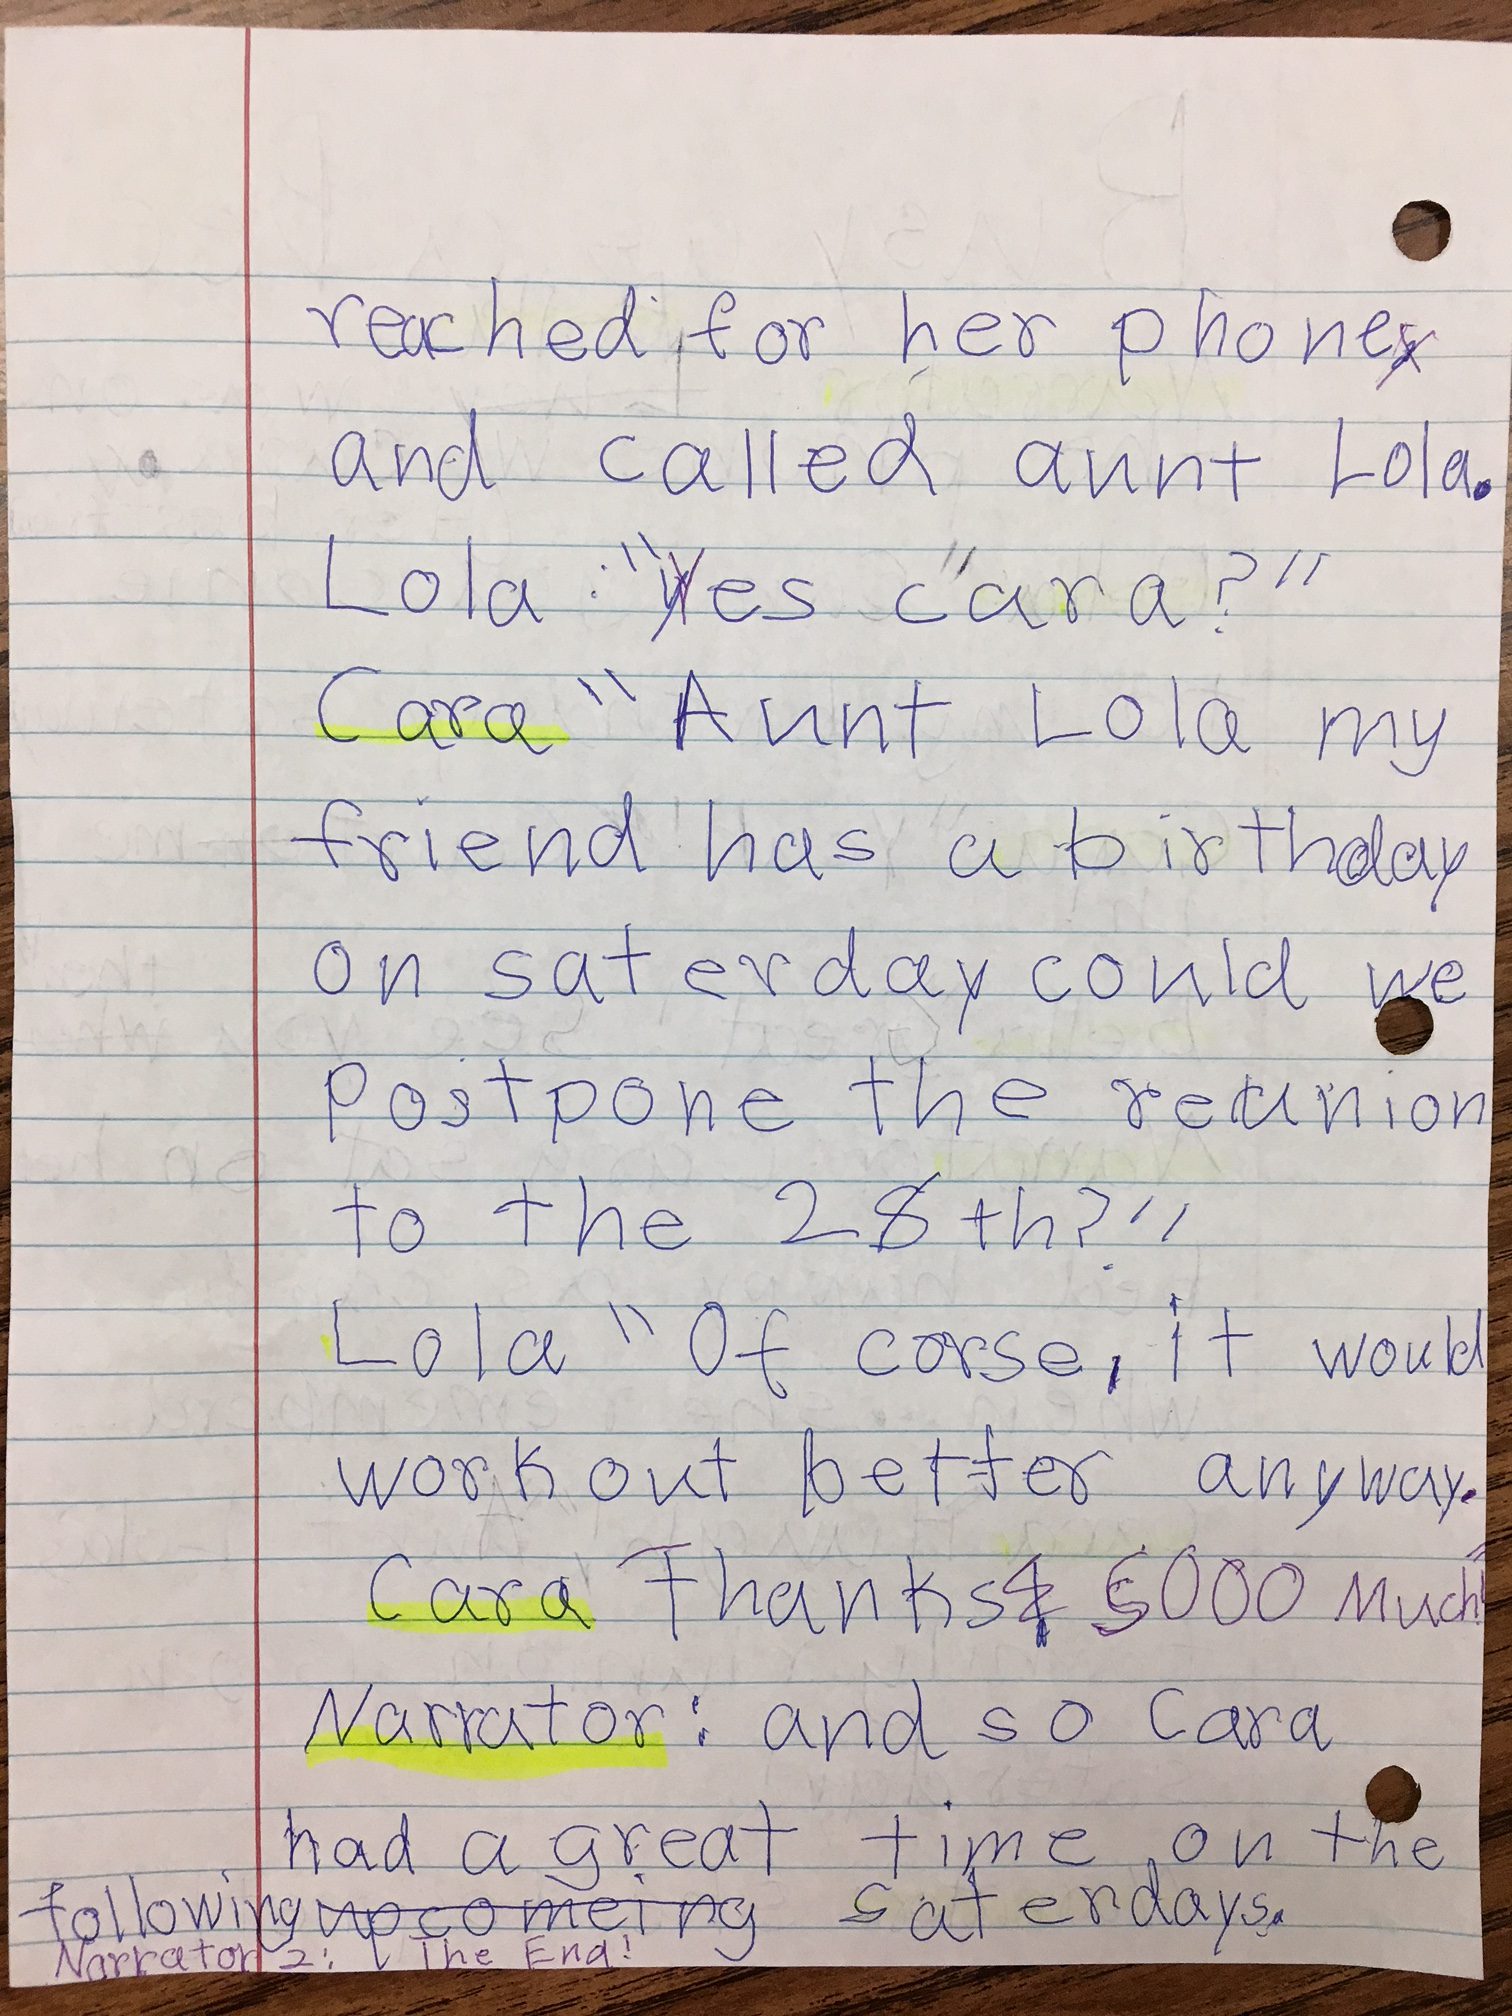 reached for her phone
and called aunt Lola.
Lola : "Yes cara?"
Cara "Aunt Lola my
friend has a birthday
on saterday could we
Postpone the reunion
to the 28th?"
Lola "Of corse, it would
workout better anyway.
Cara Thanks 5000 Much!"
Narrator: and so Cara
had a great time on the
following upcomeing saterdays.
Narrator 2: The End!